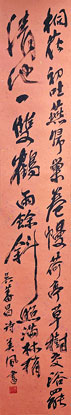 桐花初吐燕歸巢卷幔荷亭草樹交浴罷
清池一雙鶴雨餘斜照滿林梢